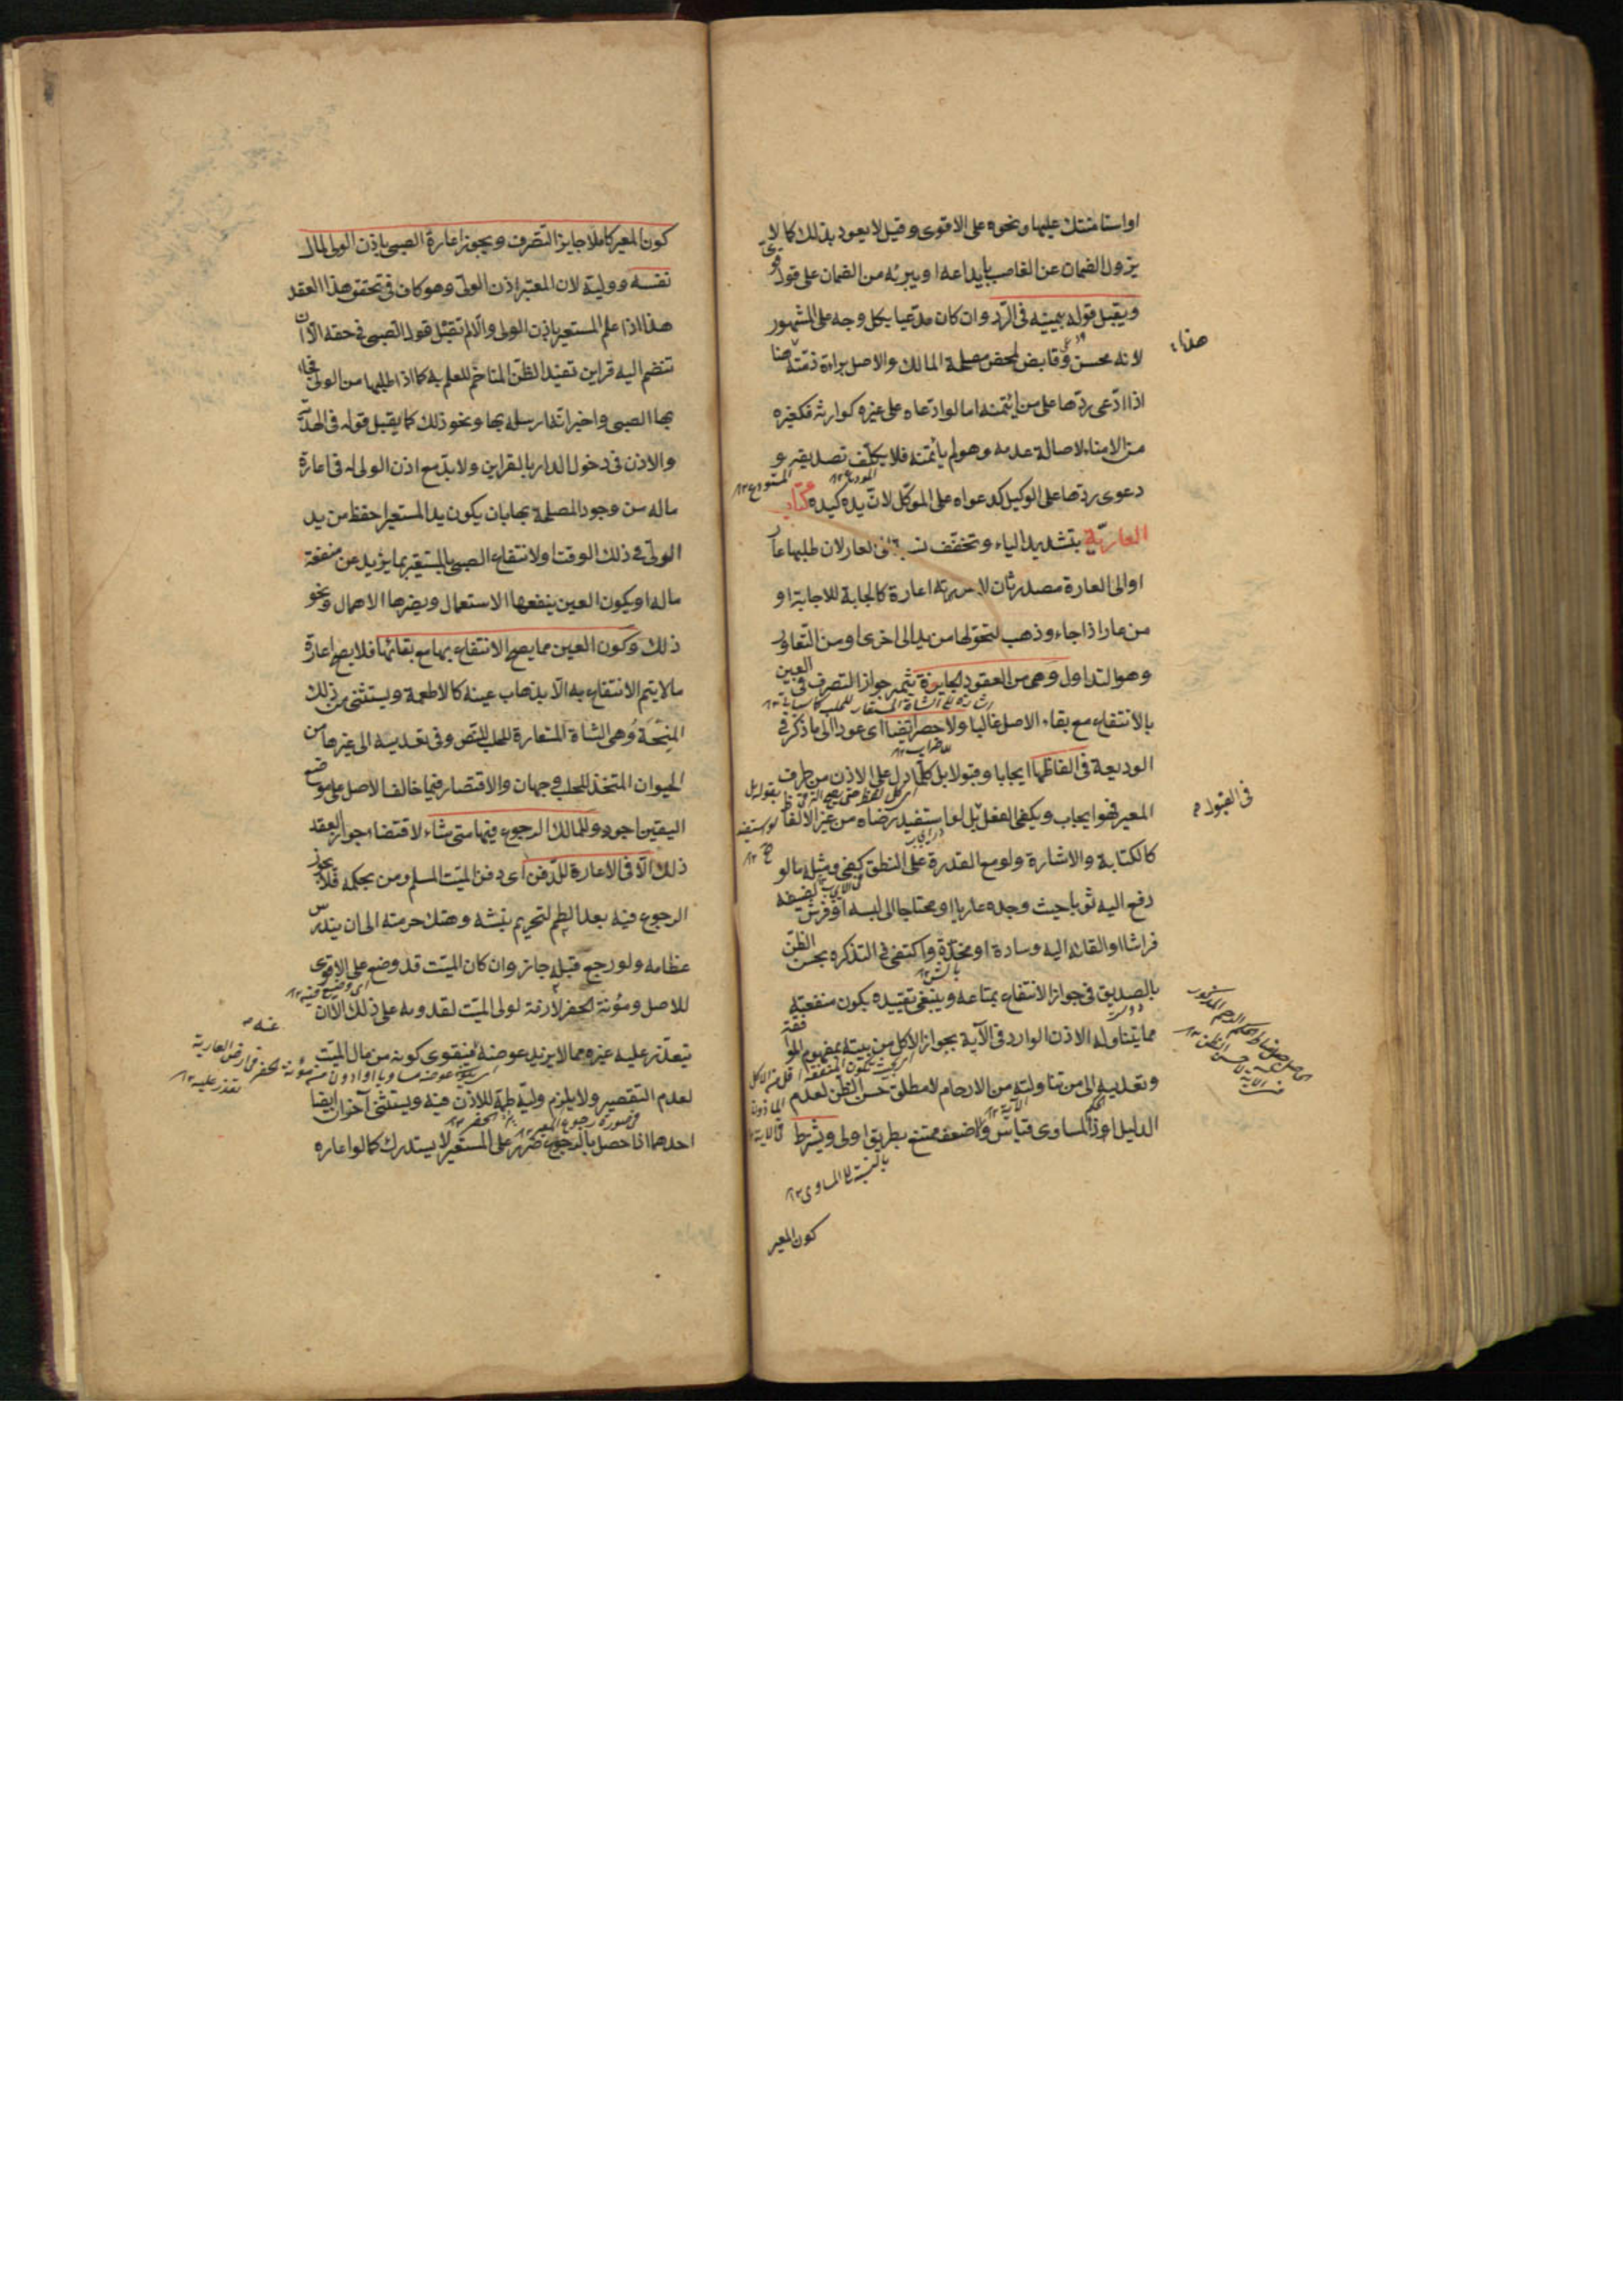 او استامنتك عليها ونحوه على الاقوى وقيل لا يعود بذلك كما لا
يزول الضمان عن الغاصب بايداعه او يبرئه من الضمان على قول قوى
ويقبل قوله بيمينه فى الرد وان كان مدعيا بكل وجه على المشهور
لانه محسن وقابض لمحض مصلحة المالك والاصل براءة ذمته هذا
اذا ادعى ردها على من ائتمنه اما لو ادعاه على غيره كوارثه فكغيره
من الامناء لاصالة عدمه وهو لم يأتمنه فلا يكلف تصديقه و
دعوى ردها على الوكيل كدعواه على الموكل لان يده كيده كتاب
العارية بتشديد الياء وتخفف نسبة الى العار لان طلبها عار
او الى العارة مصدر ثان لاعرته اعارة كالجابة للاجابة او
من عار اذا جاء وذهب لتحولها من يد الى اخرى او من التعاور
وهو التداول وهى من العقود الجايزة تثمر جواز التصرف فى العين
بالانتفاع مع بقاء الاصل غالبا ولا حصر ايضا اى عود الى ما ذكر فى
الوديعة فى الفاظها ايجابا وقبولا بل كلما دل على الاذن من طرف
المعير فهو ايجاب ويكفى الفعل بل لو استفيد رضاه من غير الالفاظ
كالكتابة والاشارة ولو مع القدرة على النطق كفى ومثله ما لو
دفع اليه ثوبا حيث وجده عاريا او محتاجا الى لبسه او فرش لضيفه
فراشا او القا اليه وسادة او مخدة واكتفى فى التذكرة بحسن الظن
بالصديق فى جواز الانتفاع بمتاعه وينبغى تقييده بكون منفعته
مما يتناوله الاذن الوارد فى الآية بجواز الاكل من بيته بمفهوم الموافقة
وتعديه الى من تناولته من الارحام لا مطلق حسن الظن لعدم
الدليل اذ المساوى قياس والاضعف ممتنع بطريق اولى ويشترط
كون المعير
هذا
فى القبول
كون المعير كاملا جايز التصرف ويجوز اعارة الصبى باذن الولى لمال
نفسه ووليه لان المعتبر اذن الولى وهو كاف فى تحقق هذا العقد
هذا اذا علم المستعير باذن الولى والا لم تقبل قول الصبى فى حقه الا ان
تنضم اليه قراين تفيد الظن المتاخم للعلم به كما اذا طلبها من الولى فجاء
بها الصبى واخبر انه ارسله بها ونحو ذلك كما يقبل قوله فى الهدية
والاذن فى دخول الدار بالقراين ولا بد مع اذن الولى له فى اعارة
ماله من وجود المصلحة بها بان يكون يد المستعير احفظ من يد
الولى فى ذلك الوقت او لانتفاع الصبى بالمستعير بما يزيد عن منفعة
ماله او يكون العين ينفعها الاستعمال ويضرها الاهمال ونحو
ذلك وكون العين مما يصح الانتفاع بها مع بقائها فلا يصح اعارة
ما لا يتم الانتفاع به الا بذهاب عينه كالاطعمة ويستثنى من ذلك
المنحة وهى الشاة المستعارة للحلب للنص وفى تعديه الى غيرها من
الحيوان المتخذ للحلب وجهان والاقتصار فيما خالف الاصل على موضع
اليقين اجود وللمالك الرجوع فيها متى شاء لاقتضاء جواز العقد
ذلك الا فى الاعارة للدفن اى دفن الميت المسلم ومن بحكمه فلا يجوز
الرجوع فيه بعد الطم لتحريم نبشه وهتك حرمته الى ان يندرس
عظامه ولو رجع قبله جاز وان كان الميت قد وضع على الاقوى
للاصل ومؤنة الحفر لازمة لولى الميت لقدومه على ذلك الا ان
يتعذر عليه غيره مما لا يزيد عوضه فيقوى كونه من مال الميت
لعدم التقصير ولا يلزم وليه طمه للاذن فيه ويستثنى آخران ايضا
احدهما اذا حصل بالرجوع ضرر على المستعير لا يستدرك كما لو اعاره